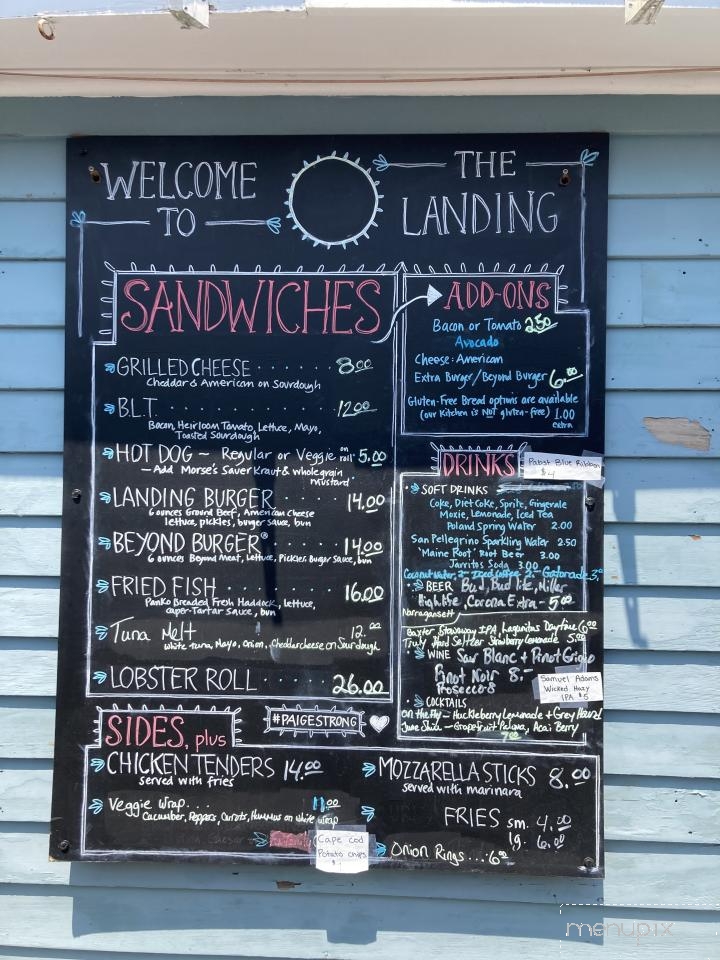 WELCOME
TO
THE
LANDING
SANDWICHES
GRILLED CHEESE 8.00
Cheddar & American on Sourdough
B.L.T. 12.00
Bacon, Heirloom Tomato, Lettuce, Mayo,
Toasted Sourdough
HOT DOG ~ Regular or Veggie on roll 5.00
— Add Morse's Sauerkraut & whole grain
mustard
LANDING BURGER 14.00
6 ounces Ground Beef, American Cheese
lettuce, pickles, burger sauce, bun
BEYOND BURGER® 14.00
6 ounces Beyond Meat, Lettuce, Pickles, Burger Sauce, bun
FRIED FISH 16.00
Panko Breaded Fresh Haddock, lettuce,
caper-Tartar Sauce, bun
Tuna Melt 12.00
white tuna, Mayo, Onion, Cheddar cheese on Sourdough
LOBSTER ROLL 26.00
ADD-ONS
Bacon or Tomato 2.50
Avocado
Cheese: American
Extra Burger/Beyond Burger 6.00
Gluten-Free Bread options are available
(our Kitchen is NOT gluten-free) 1.00
extra
DRINKS
Pabst Blue Ribbon
$4
SOFT DRINKS
Coke, Diet Coke, Sprite, Gingerale
Moxie, Lemonade, Iced Tea
Poland Spring Water 2.00
San Pellegrino Sparkling Water 2.50
'Maine Root' Root Beer 3.00
Jarritos Soda 3.00
Coconut water, Iced Coffee Gatorade
BEER Bud, Bud lite, Miller
High life, Corona Extra - 5.00
Narragansett
Baxter Stowaway IPA, Lagunitas Daytime 6.00
Truly Hard Seltzer Strawberry Lemonade 5.00
WINE Sav Blanc + Pinot Grigio
Pinot Noir 8.-
Prosecco 8
Samuel Adams
Wicked Hazy
IPA $5
COCKTAILS
on the Fly - Huckleberry Lemonade + Grey Hound
June Shine - Grapefruit Paloma, Acai Berry
7.00
#PAIGESTRONG
SIDES, plus
CHICKEN TENDERS 14.00
served with fries
Veggie Wrap... 11.00
Cucumber, Peppers, Carrots, Hummus on white wrap
Cape Cod
Potato chips
MOZZARELLA STICKS 8.00
served with marinara
FRIES sm. 4.00
lg. 6.00
Onion Rings .... 6.00
menupix